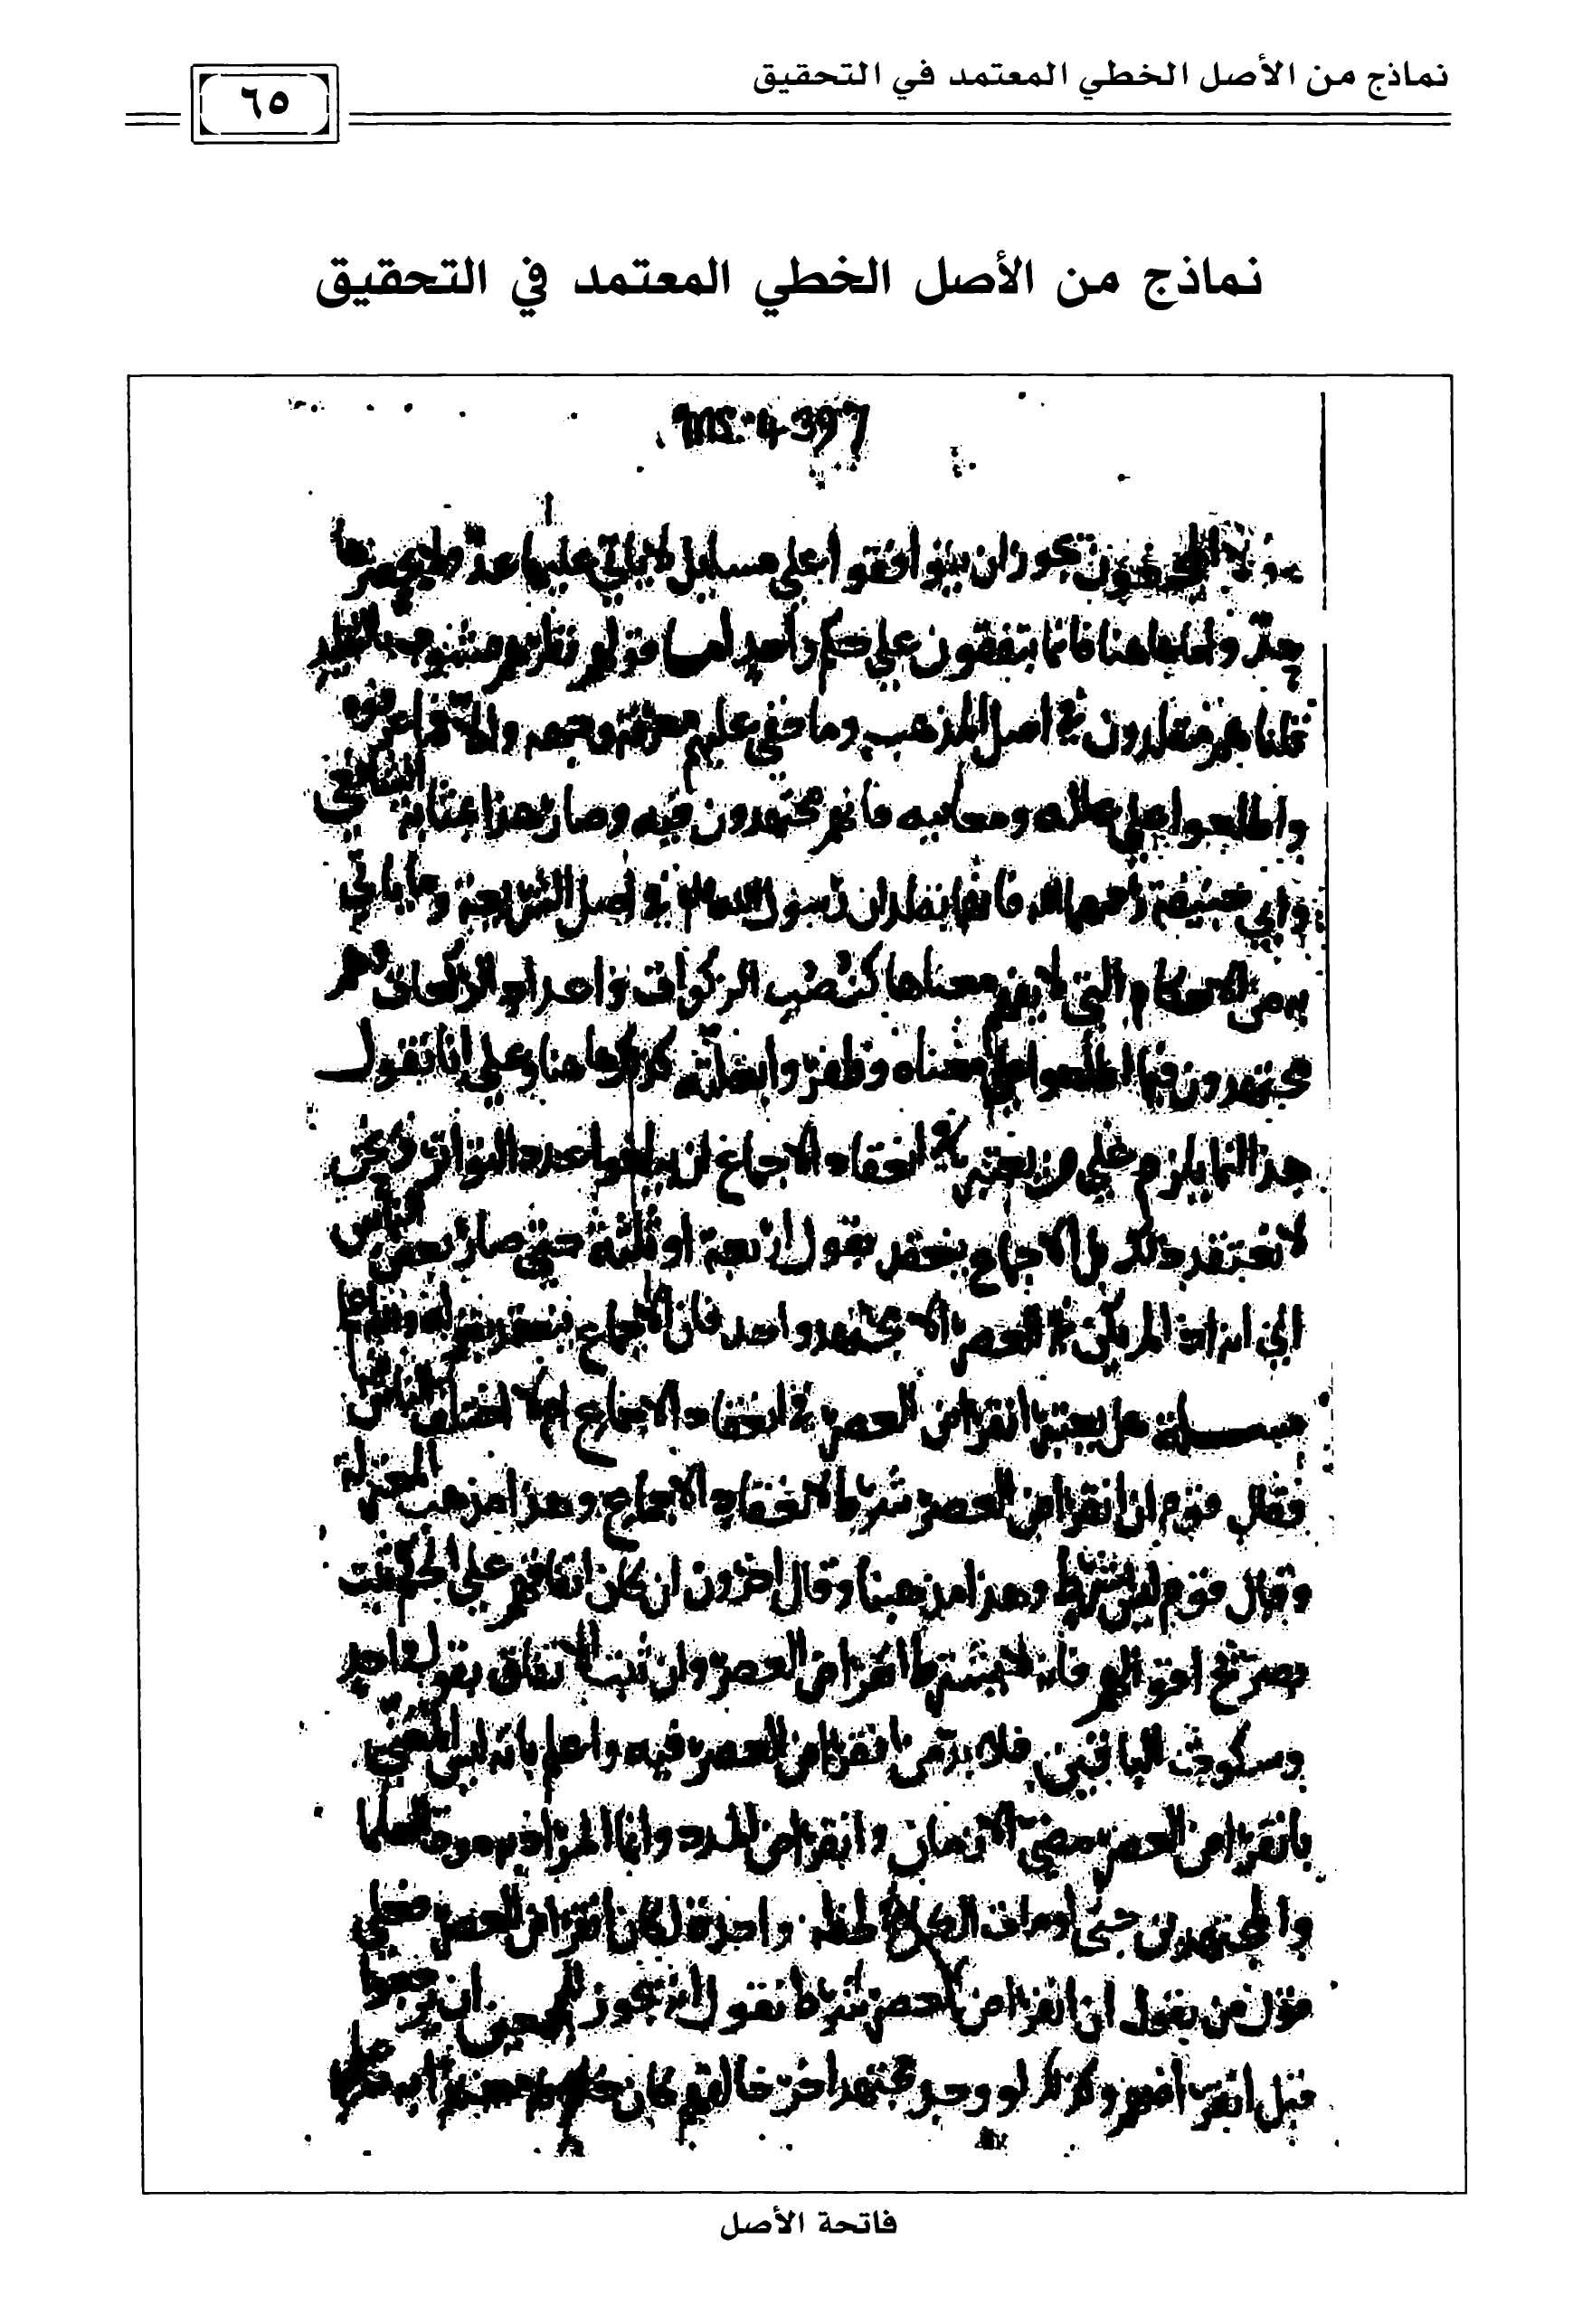 نماذج من الأصل الخطي المعتمد في التحقيق
٦٥
نماذج من الأصل الخطي المعتمد في التحقيق
MS. 4397
يجوز ان يتوافقوا على مسايل لا ياتي عليها عد
واما هاهنا فانما يتفقون على حكم واحد
قلنا هم مقلدون في اصل المذهب وما خفي عليهم معرفته وجهه
واطلعوا على علله ومعانيه فانهم مجتهدون فيه وصار هذا بمثابة الشافعي
وابي حنيفة رحمهما الله فانهما يقلدان رسول الله في اصل الشريعة وما ياتي
به من الاحكام التي لا يفهم معناها كنصب الزكوات واعداد الركعات وهم
مجتهدون فيما اطلعوا على معناه وظفروا بعلته كذلك هاهنا وعلى انا نقول
هذا انما يلزم على من يعتبر في انعقاد الاجماع ان يبلغوا عدد التواتر ونحن
لا نعتقد ذلك بل الاجماع ينعقد بقول اربعة او ثلثة حتى صار بعض الناس
الى انه اذا لم يكن في العصر الا مجتهد واحد فان الاجماع ينعقد بقوله
مسلة هل يعتبر انقراض العصر في انعقاد الاجماع ام لا اختلف الناس
فقال قوم ان انقراض العصر شرط لانعقاد الاجماع وهذا مذهب المعتزلة
وقال قوم ليس بشرط وهذا مذهبنا وقال اخرون ان كان اتفاقهم على الحكم ثبت
بصريح اقوالهم فانه لا يشترط انقراض العصر وان ثبت الاتفاق بقول واحد
وسكوت الباقين فلا بد من انقراض العصر فيه واعلم بانه ليس المعني
بانقراض العصر مضي الازمان وانقراض المدد وانما المراد به موت العلما
والمجتهدين حتى لو مات الكل في لحظة واحدة لكان انقراض العصر فعلى
قول من يقول ان انقراض العصر شرط نقول انه يجوز للمجمعين ان يرجعوا
قبل انقراضهم وكذلك لو وجد مجتهد اخر خالفهم كان
فاتحة الأصل